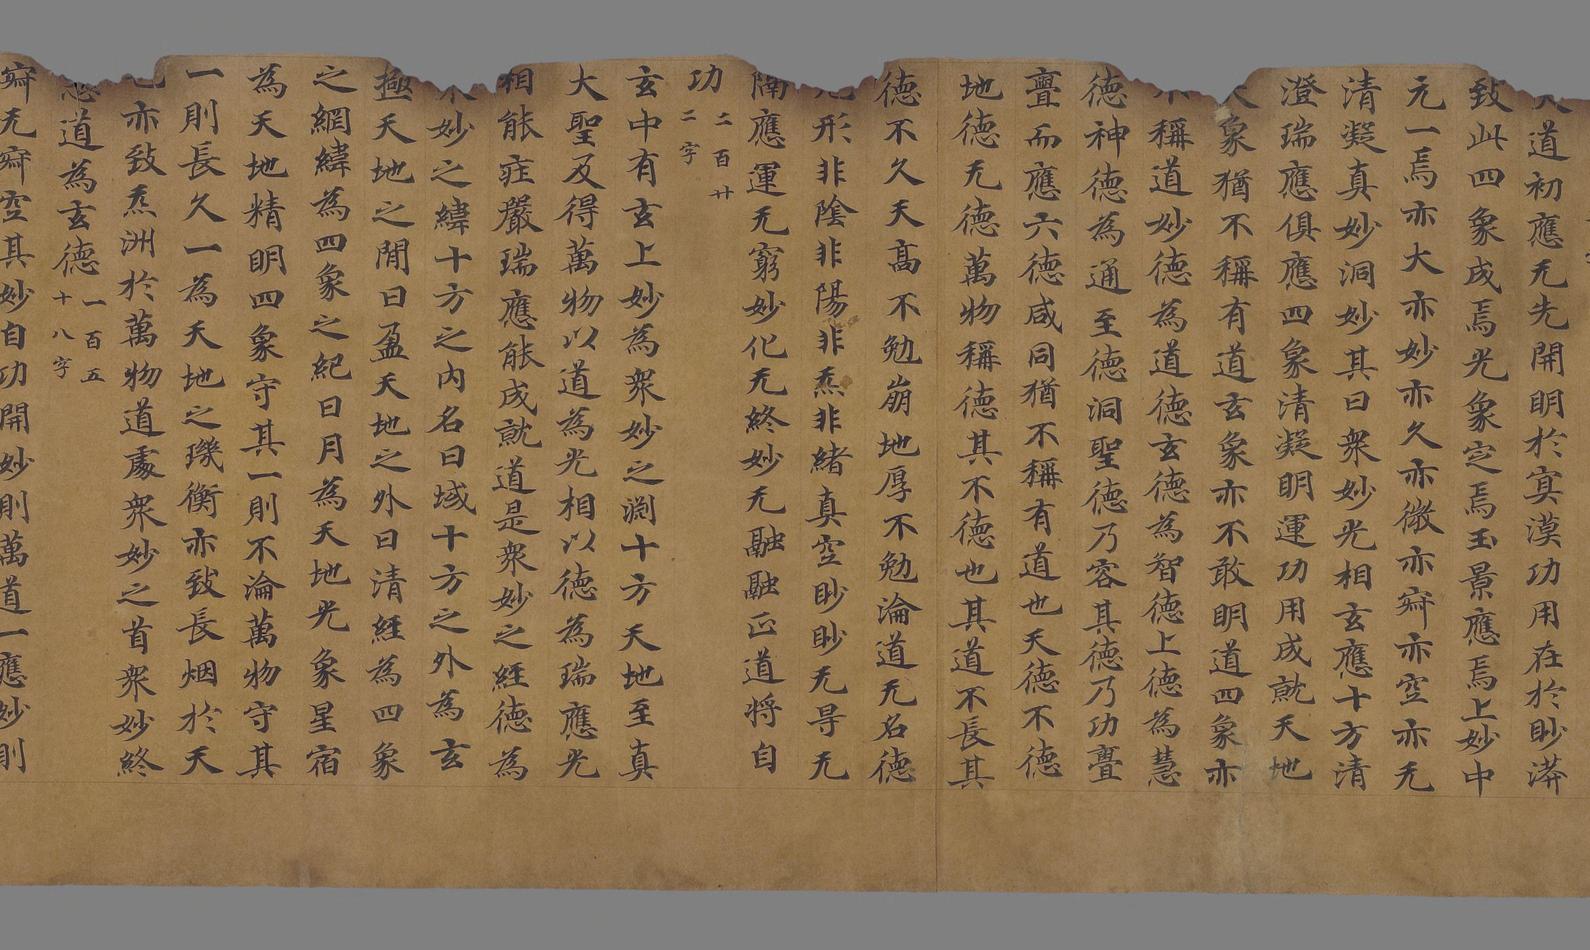 道初應无先開明於寞漠功用在於眇漭
致此四象成焉光象定焉玉景應焉上妙中
元一焉亦大亦妙亦久亦微亦寂亦空亦无
清凝真妙洞妙其曰衆妙光相玄應十方清
澄瑞應俱應四象清凝明運功用成就天地
象猶不稱有道玄象亦不敢明道四象亦
稱道妙德為道德玄德為智德上德為慧
德神德為通至德洞聖德乃容其德乃功亹
亹而應六德咸同猶不稱有道也天德不德
地德无德萬物稱德其不德也其道不長其
德不久天高不勉崩地厚不勉淪道无名德
形非陰非陽非炁非緒真空眇眇无㝵无
閡應運无窮妙化无終妙无融融正道將自
功 二百廿二字
玄中有玄上妙為衆妙之淵十方天地至真
大聖及得萬物以道為光相以德為瑞應光
相能庄嚴瑞應能成就道是衆妙之經德為
妙之緯十方之內名曰域十方之外為玄
極天地之間曰盈天地之外曰清經為四象
之綱緯為四象之紀日月為天地光象星宿
為天地精明四象守其一則不淪萬物守其
一則長久一為天地之璣衡亦致長烟於天
亦致炁洲於萬物道處衆妙之首衆妙終
道為玄德 一百五十八字
寂无寂空其妙自功開妙則萬道一應妙則